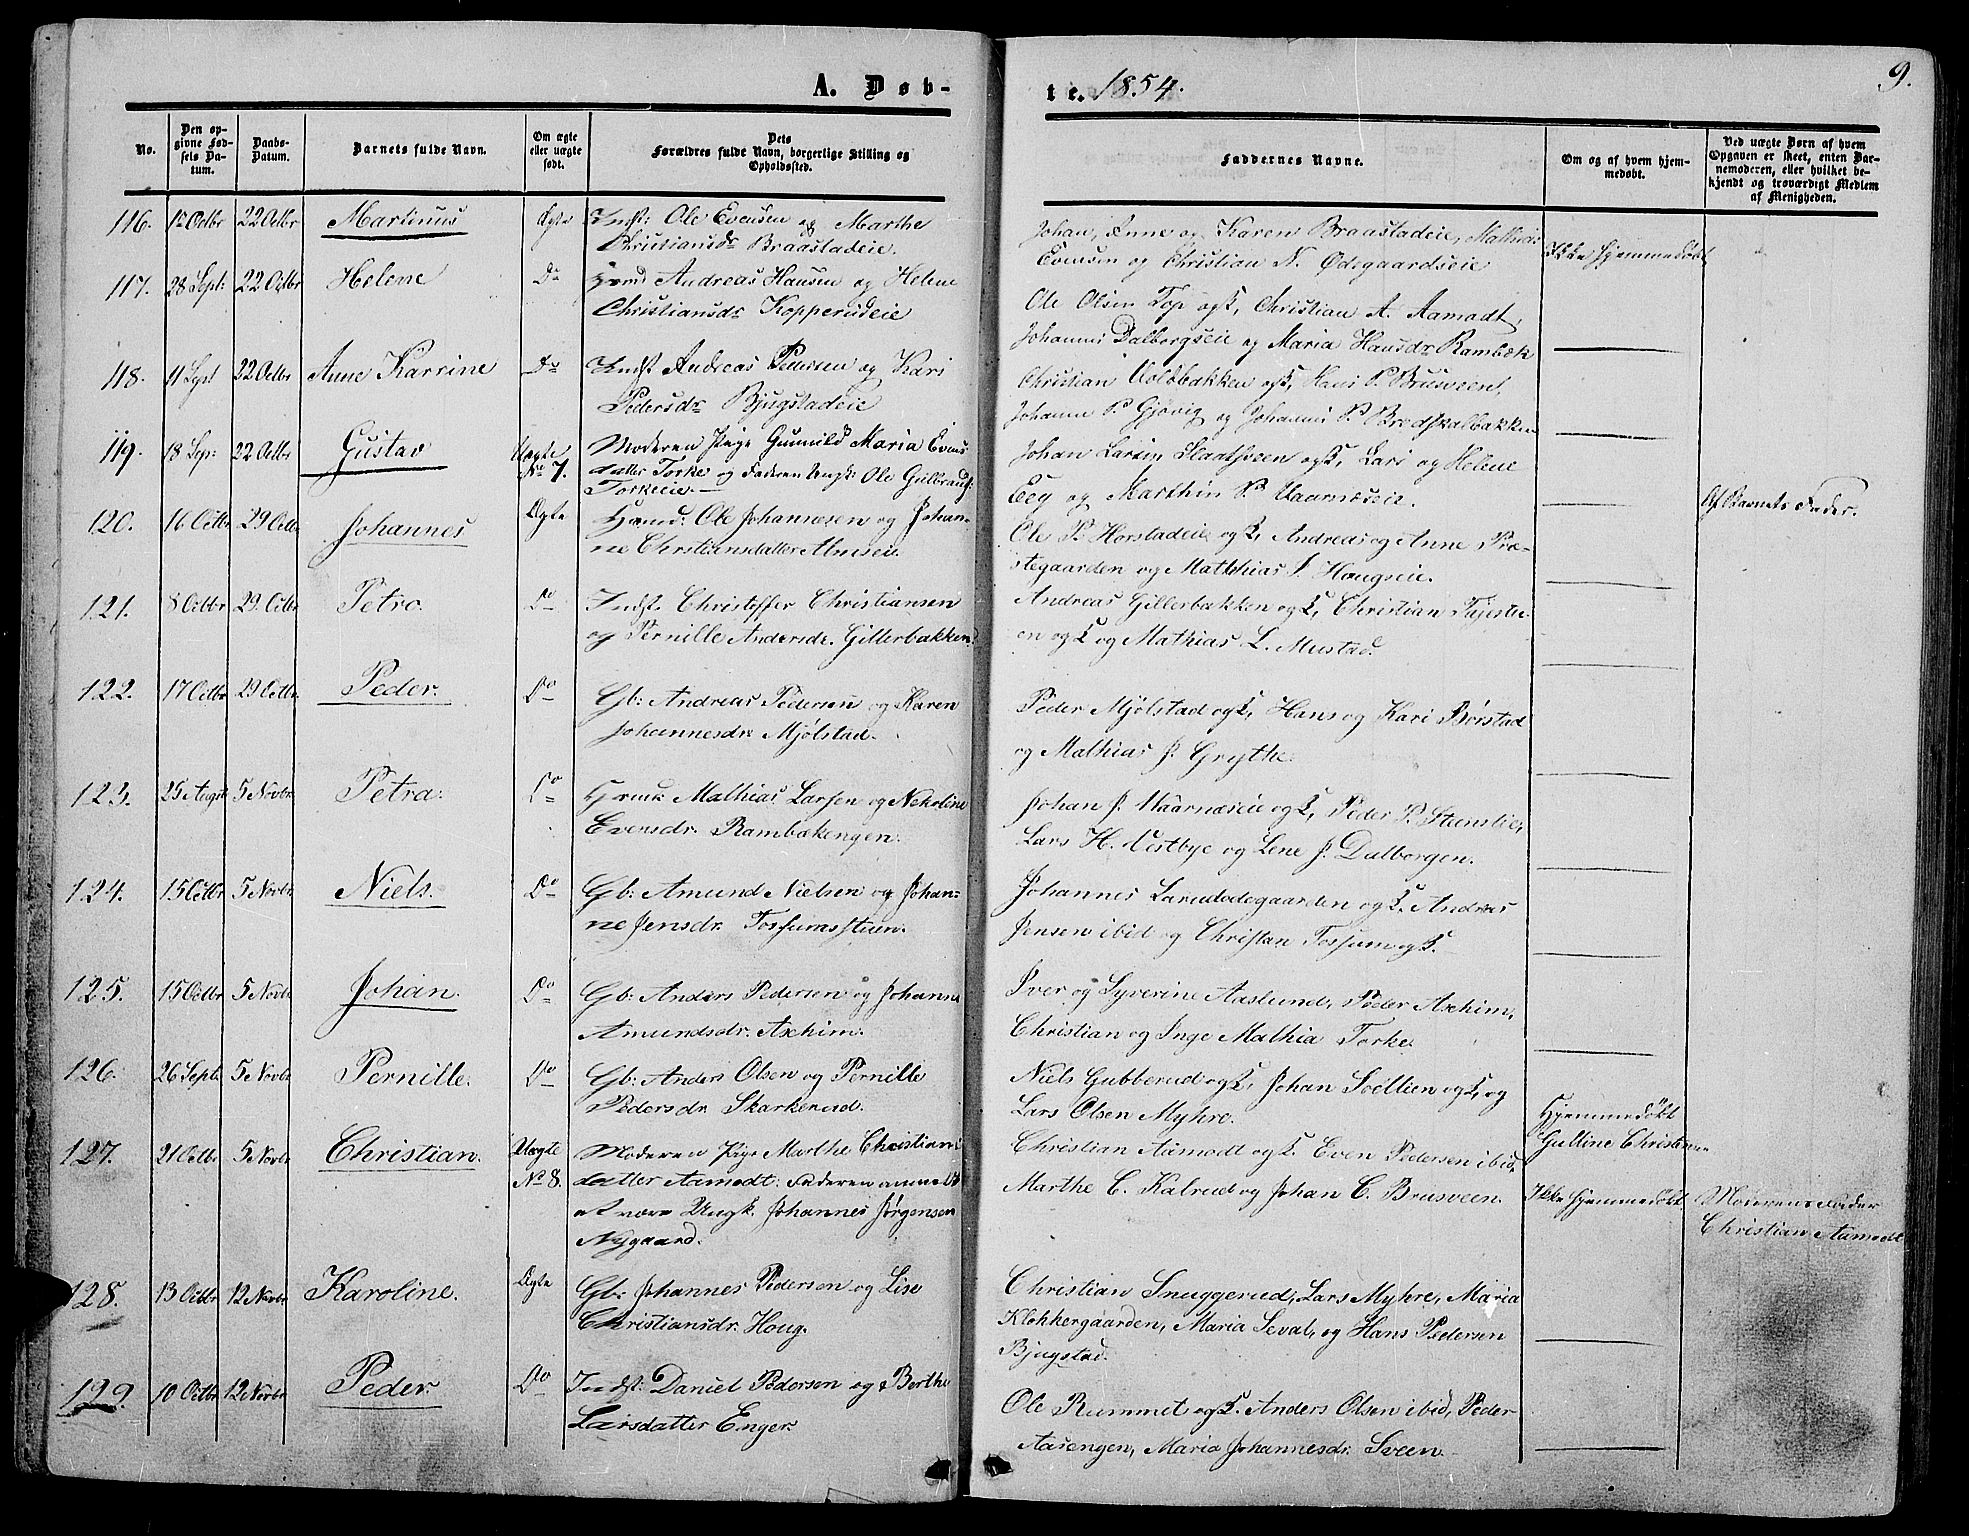 A. Døb-
te. 1854.
9.
No.
Den op-
givne Fød-
sels Da-
tum.
Daabs-
Datum.
Barnets fulde Navn.
Om ægte
eller uægte
født.
Dets
Forældres fulde Navn, borgerlige Stilling og
Opholdssted.
Faddernes Navne.
Om og af hvem hjem-
medøbt.
Ved uægte Børn af hvem
Opgaven er skeet, enten Bar-
nemoderen, eller hvilket be-
kjendt og troværdigt Medlem
af Menigheden.
116. 1ste Octbr 22 Octbr Martinus Ægte Indst: Ole Evensen og Marthe
Christiansdr Braastadeie.
Johan, Anne og Karen Braastadeie, Mathias
Evensen og Christian N. Ødegaardseie
Ikke hjemmedøbt
117. 28 Sept: 22 Octbr Helene Do Hmd Andreas Hansen og Helene
Christiansdr Kopperudeie
Ole Olsen Top ogK, Christian A. Aamodt,
Johannes Dalborgseie og Maria Hansdr Rambæk
118. 11 Sept 22 Octbr Anne Karrine Do Indst Andreas Pedersen og Kari
Pedersdr Bjugstadeie
Christian Voldbakken ogK, Hans P. Brusveen,
Johann P. Gjøvig og Johannes P. Bredskalbakken
119. 18 Sep: 22 Octbr Gustav Uægte
No 7.
Moderen Pige Gunnild Maria Evens-
datter Torke og Faderen Ungk: Ole Gulbrands:
Torkeeie.
Johan Larsen Slaatsveen ogK, Lars og Helene
Eeg og Marthin P. Vaarnæseie.
Af Barnets Fader.
120. 16 Octbr 29 Octbr Johannes Ægte Husmd: Ole Johannesen og Johan-
ne Christiansdatter Almseie.
Ole P. Horstadeie ogK, Andreas og Anne Præ-
stegaarden og Matthias J. Hougseie.
121. 8 Octbr 29 Octbr Petra. Do Indst. Christoffer Christiansen
og Pernille Andersdr. Gillerbakken.
Andreas Gillerbakken ogK, Christian
en ogK og Mathias L. Mustad.
122. 17 Octbr 29 Octbr Peder. Do Gb: Andreas Pedersen og Karen
Johannesdr. Mjølstad.
Peder Mjølstad ogK, Hans og Kari Børstad
og Mathias J. Grythe.
123. 25 August 5 Novbr. Petra. Do Husmd: Mathias Larsen og Nekoline
Evensdr. Rambækengen.
Johan J. Vaarnæseie ogK, Peder P. Steinslie,
Lars H. Vestbye og Lene J. Dalborgen.
124. 15 Octbr 5 Novbr Niels. Do Gb: Amund Nielsen og Johan-
ne Jensdr. Fossumstuen.
Johannes Larudødegaarden ogK, Andreas
Jensen ibid og Christian Fossum ogK.
125. 15 Octbr 5 Novbr Johan. Do Gb: Anders Pedersen og Johanne
Amundsdr. Aschim.
Iver og Syverine Aaslund, Peder Aschim,
Christian og Inge Mathia Torke.
126. 26 Sept. 5 Novbr Pernille. Do Gb: Anders Olsen og Pernille
Pedersdr. Skarkerud.
Niels Gubberud ogK, Johan Soellien ogK, og
Lars Olsen Myhre.
127. 21 Octbr 5 Novbr Christian. Uægte
No 8.
Moderen Pige Marthe Christians-
datter Aamodt: Faderen anmeldt
at være Ungk. Johannes Jørgensen
Nygaard.
Christian Aamodt ogK, Even Pedersen ibid,
Marthe C. Kalrud og Johan C. Brusveen.
Hjemmedøbt
Gulline Christian-
Ikke hjemmedøbt
Moderens Fader
Christian Aamodt
128. 13 Octbr 12 Novbr Karoline. Ægte Gb: Johannes Pedersen og Lise
Christiansdr. Houg.
Christian Snuggerud, Lars Myhre, Maria
Klokkergaarden, Maria Seval, og Hans Pedersen
Bjugstad.
129. 10 Octbr 12 Novbr Peder. Do Indst: Daniel Pedersen og Berthe
Larsdatter Enger.
Ole Rummet ogK, Anders Olsen ibid, Peder
Aasengen, Maria Johannesdr. Sveen.